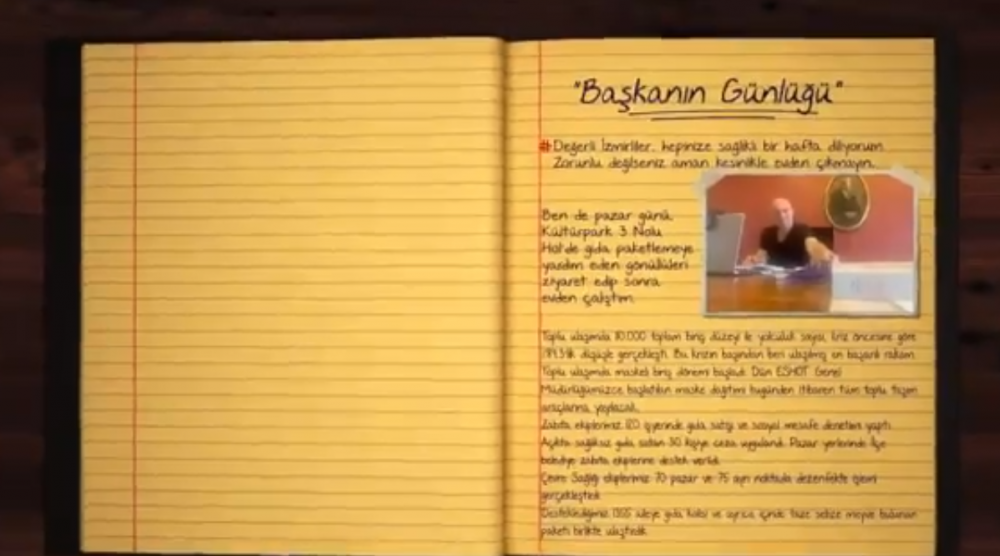 "Başkanın Günlüğü"
#Değerli İzmirliler, hepinize sağlıklı bir hafta diliyorum.
Zorunlu değilseniz aman kesinlikle evden çıkmayın.
Ben de pazar günü,
Kültürpark 3 Nolu
Hol'de gıda paketlemeye
yardım eden gönüllüleri
ziyaret edip sonra
evden çalıştım.
Toplu ulaşımda 110.000 toplam biniş düzeyi ile yolculuk sayısı, kriz öncesine göre
düşüşle gerçekleşti. Bu krizin başından beri ulaştığımız en başarılı rakam.
Toplu ulaşımda maskeli biniş dönemi başladı. Dün ESHOT Genel
Müdürlüğümüzce başlatılan maske dağıtımı bugünden itibaren tüm toplu taşım
araçlarına yayılacak.
Zabıta ekiplerimiz 120 işyerinde gıda satışı ve sosyal mesafe denetimi yaptı.
Açıkta sağlıksız gıda satan 30 kişiye ceza uygulandı. Pazar yerlerinde ilçe
belediye zabıta ekiplerine destek verildi.
Çevre Sağlığı ekiplerimiz 70 pazar ve 75 ayrı noktada dezenfekte işlemi
gerçekleştirdi.
Desteklediğimiz 1355 aileye gıda kolisi ve ayrıca içinde taze sebze meyve bulunan
paketi birlikte ulaştırdık.